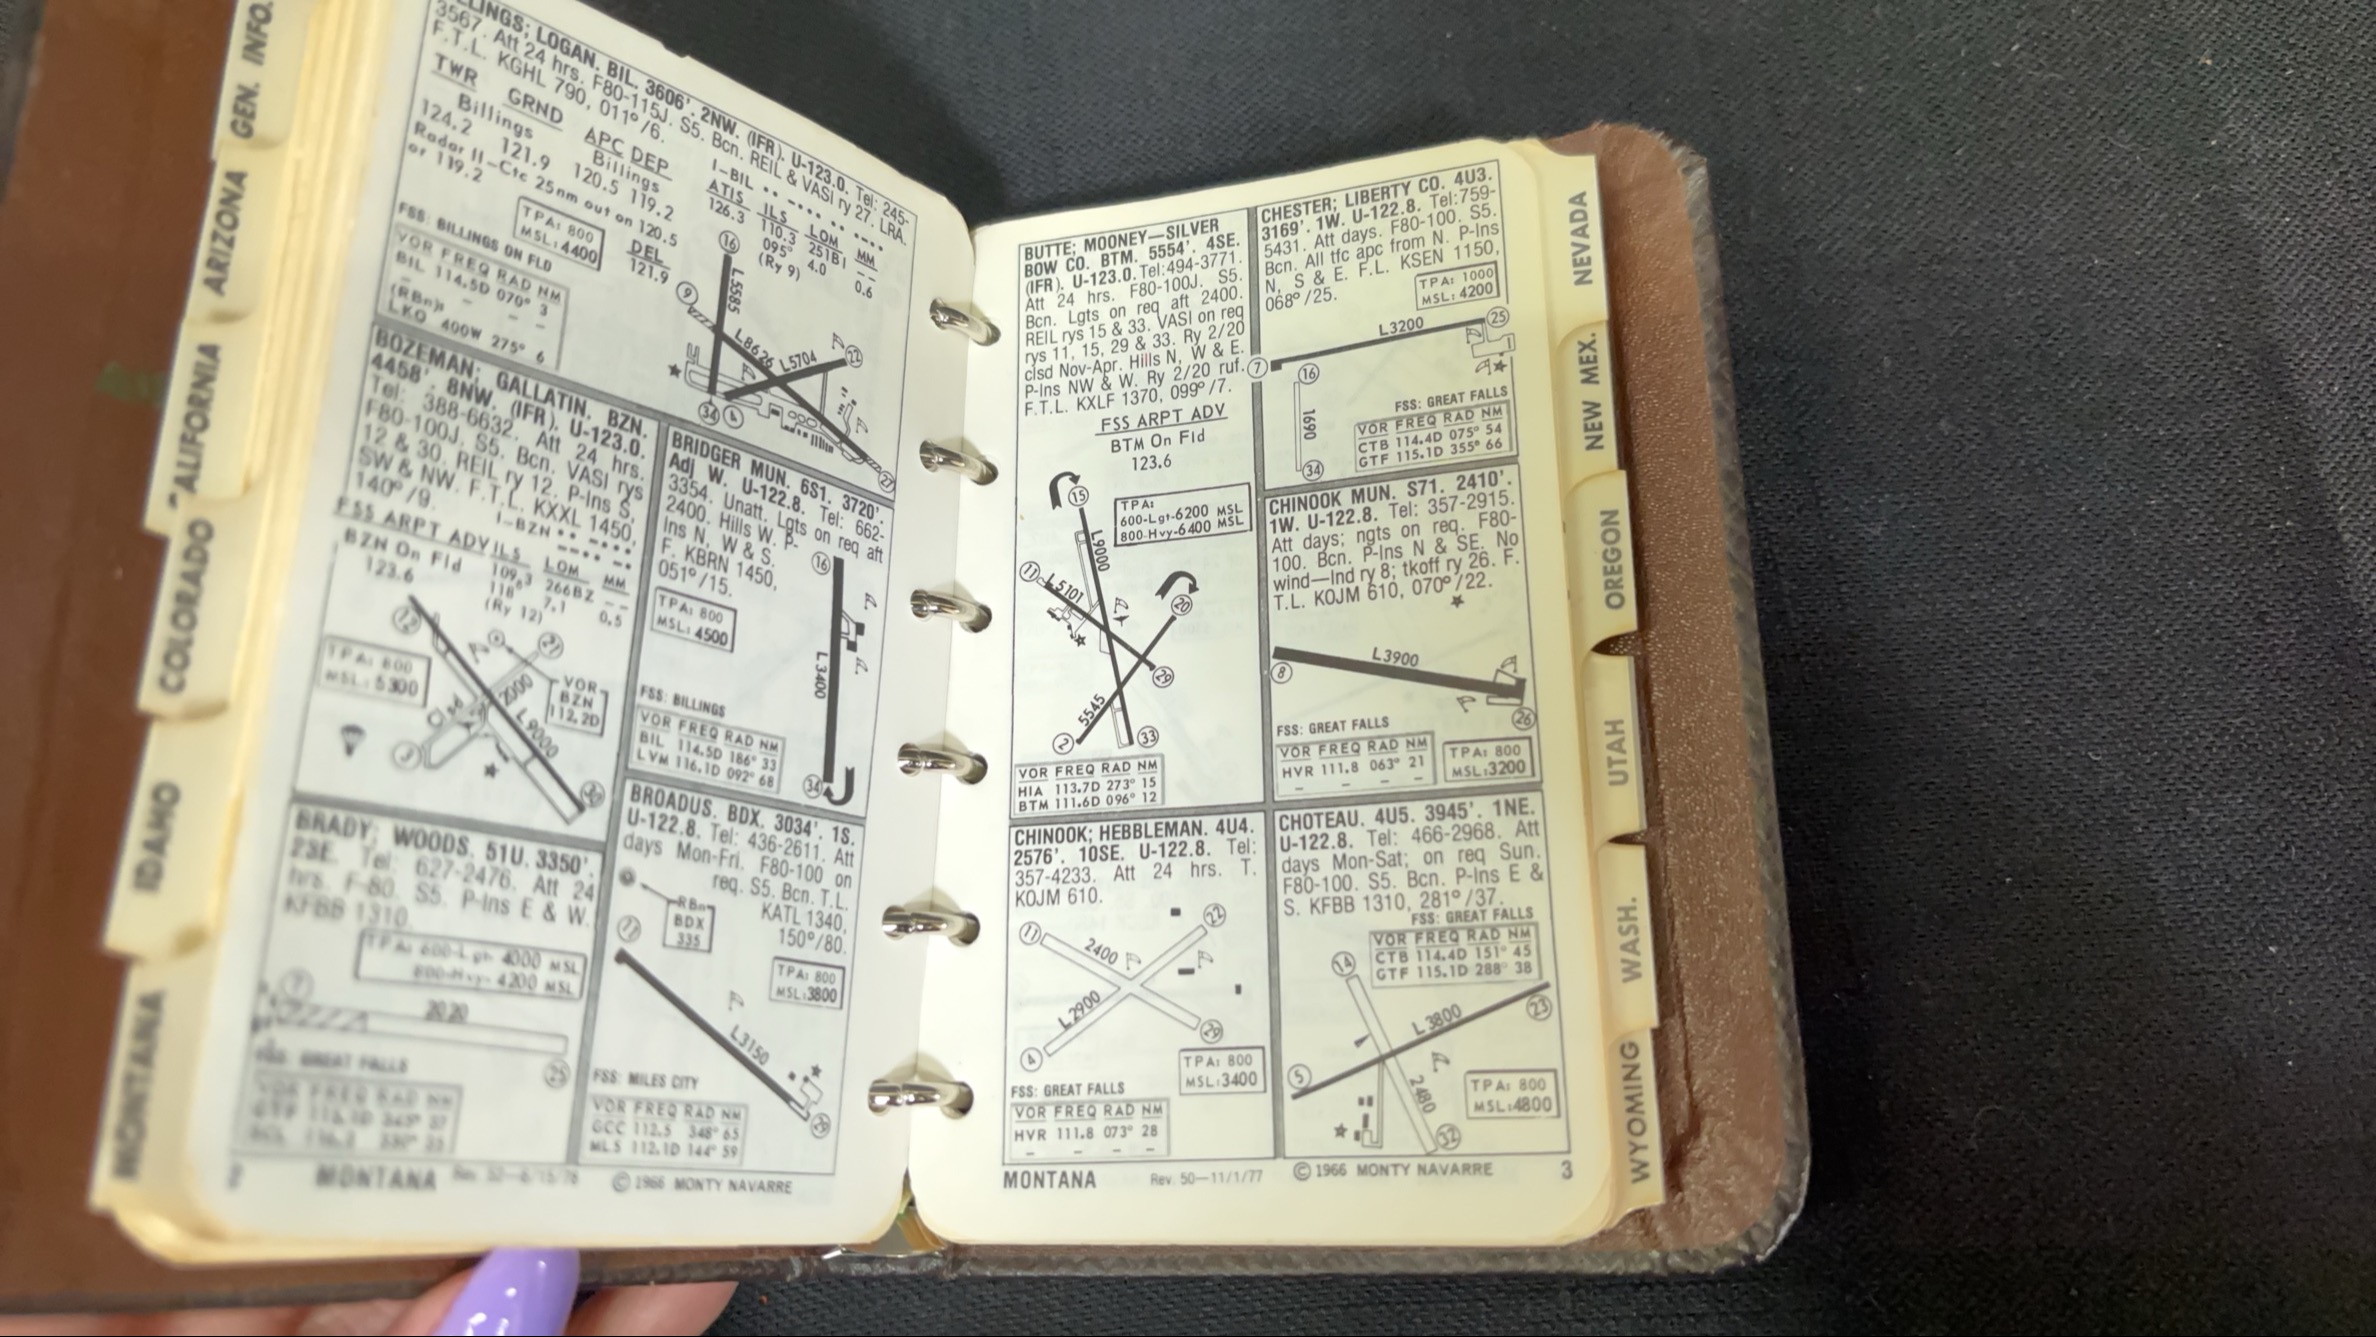 GEN. INFO.
ARIZONA
CALIFORNIA
COLORADO
IDAHO
MONTANA
LLINGS; LOGAN. BIL. 3606'. 2NW. (IFR). U-123.0. Tel: 245-
3567. Att 24 hrs. F80-115J. S5. Bcn. REIL & VASI ry 27. LRA.
F.T.L. KGHL 790, 011°/6.
TWR GRND APC DEP
Billings Billings
124.2 121.9 120.5 119.2
Radar II-Ctc 25nm out on 120.5
or 119.2
I-BIL
ATIS ILS LOM MM
126.3 110.3 251BI - -
095° 4.0 0.6
(Ry 9)
TPA: 800
MSL: 4400
DEL
121.9
FSS: BILLINGS ON FLD
VOR FREQ RAD NM
BIL 114.5D 070° 3
- - - -
(RBn):
LKO 400W 275° 6
16
9
L5585
L8626
L5704
22
34
4
27
BOZEMAN; GALLATIN. BZN.
4458'. 8NW. (IFR). U-123.0.
Tel: 388-6632. Att 24 hrs.
F80-100J. S5. Bcn. VASI rys
12 & 30. REIL ry 12. P-lns S,
SW & NW. F.T.L. KXXL 1450,
140°/9.
I-BZN
FSS ARPT ADV ILS LOM MM
BZN On Fld 109.3 266BZ - -
123.6 118° 7.1 0.5
(Ry 12)
12
21
TPA: 800
MSL: 5300
VOR
BZN
112.2D
2000
Clsd
L9000
3
30
BRIDGER MUN. 6S1. 3720'.
Adj W. U-122.8. Tel: 662-
3354. Unatt. Lgts on req aft
2400. Hills W. P-
lns N, W & S.
F. KBRN 1450,
051°/15.
16
TPA: 800
MSL: 4500
L3400
FSS: BILLINGS
VOR FREQ RAD NM
BIL 114.5D 186° 33
LVM 116.1D 092° 68
34
BRADY; WOODS. 51U. 3350'.
23E. Tel: 627-2476. Att 24
hrs. F-80. S5. P-lns E & W.
KFBB 1310.
TPA: 600-Lgt- 4000 MSL
800-Hvy- 4200 MSL
7
2020
25
FSS: GREAT FALLS
VOR FREQ RAD NM
BROADUS. BDX. 3034'. 1S.
U-122.8. Tel: 436-2611. Att
days Mon-Fri. F80-100 on
req. S5. Bcn. T.L.
KATL 1340,
150°/80.
RBn
BDX
335
11
TPA: 800
MSL:3800
L3150
29
FSS: MILES CITY
VOR FREQ RAD NM
GCC 112.5 348° 65
MLS 112.1D 144° 59
2 MONTANA Rev. 50-6/15/76 ©1966 MONTY NAVARRE
BUTTE; MOONEY—SILVER
BOW CO. BTM. 5554'. 4SE.
(IFR). U-123.0. Tel:494-3771.
Att 24 hrs. F80-100J. S5.
Bcn. Lgts on req aft 2400.
REIL rys 15 & 33. VASI on req
rys 11, 15, 29 & 33. Ry 2/20
clsd Nov-Apr. Hills N, W & E.
P-lns NW & W. Ry 2/20 ruf.
F.T.L. KXLF 1370, 099°/7.
FSS ARPT ADV
BTM On Fld
123.6
15
TPA:
600-Lgt-6200 MSL
800-Hvy-6400 MSL
L9000
11
L5101
20
29
5545
2
33
VOR FREQ RAD NM
HIA 113.7D 273° 15
BTM 111.6D 096° 12
CHESTER; LIBERTY CO. 4U3.
3169'. 1W. U-122.8. Tel:759-
5431. Att days. F80-100. S5.
Bcn. All tfc apc from N. P-lns
N, S & E. F.L. KSEN 1150,
068°/25.
TPA: 1000
MSL: 4200
L3200
25
7
16
1690
34
FSS: GREAT FALLS
VOR FREQ RAD NM
CTB 114.4D 075° 54
GTF 115.1D 355° 66
CHINOOK MUN. S71. 2410'.
1W. U-122.8. Tel: 357-2915.
Att days; ngts on req. F80-
100. Bcn. P-lns N & SE. No
wind—lnd ry 8; tkoff ry 26. F.
T.L. KOJM 610, 070°/22.
8
L3900
26
FSS: GREAT FALLS
VOR FREQ RAD NM
HVR 111.8 063° 21
- - - -
TPA: 800
MSL:3200
CHINOOK; HEBBLEMAN. 4U4.
2576'. 10SE. U-122.8. Tel:
357-4233. Att 24 hrs. T.
KOJM 610.
11
22
2400
L2900
4
29
TPA: 800
MSL:3400
FSS: GREAT FALLS
VOR FREQ RAD NM
HVR 111.8 073° 28
- - - -
CHOTEAU. 4U5. 3945'. 1NE.
U-122.8. Tel: 466-2968. Att
days Mon-Sat; on req Sun.
F80-100. S5. Bcn. P-lns E &
S. KFBB 1310, 281°/37.
FSS: GREAT FALLS
VOR FREQ RAD NM
CTB 114.4D 151° 45
GTF 115.1D 288° 38
14
L3800
23
5
2480
32
TPA: 800
MSL:4800
MONTANA Rev. 50—11/1/77 ©1966 MONTY NAVARRE 3
NEVADA
NEW MEX.
OREGON
UTAH
WASH.
WYOMING